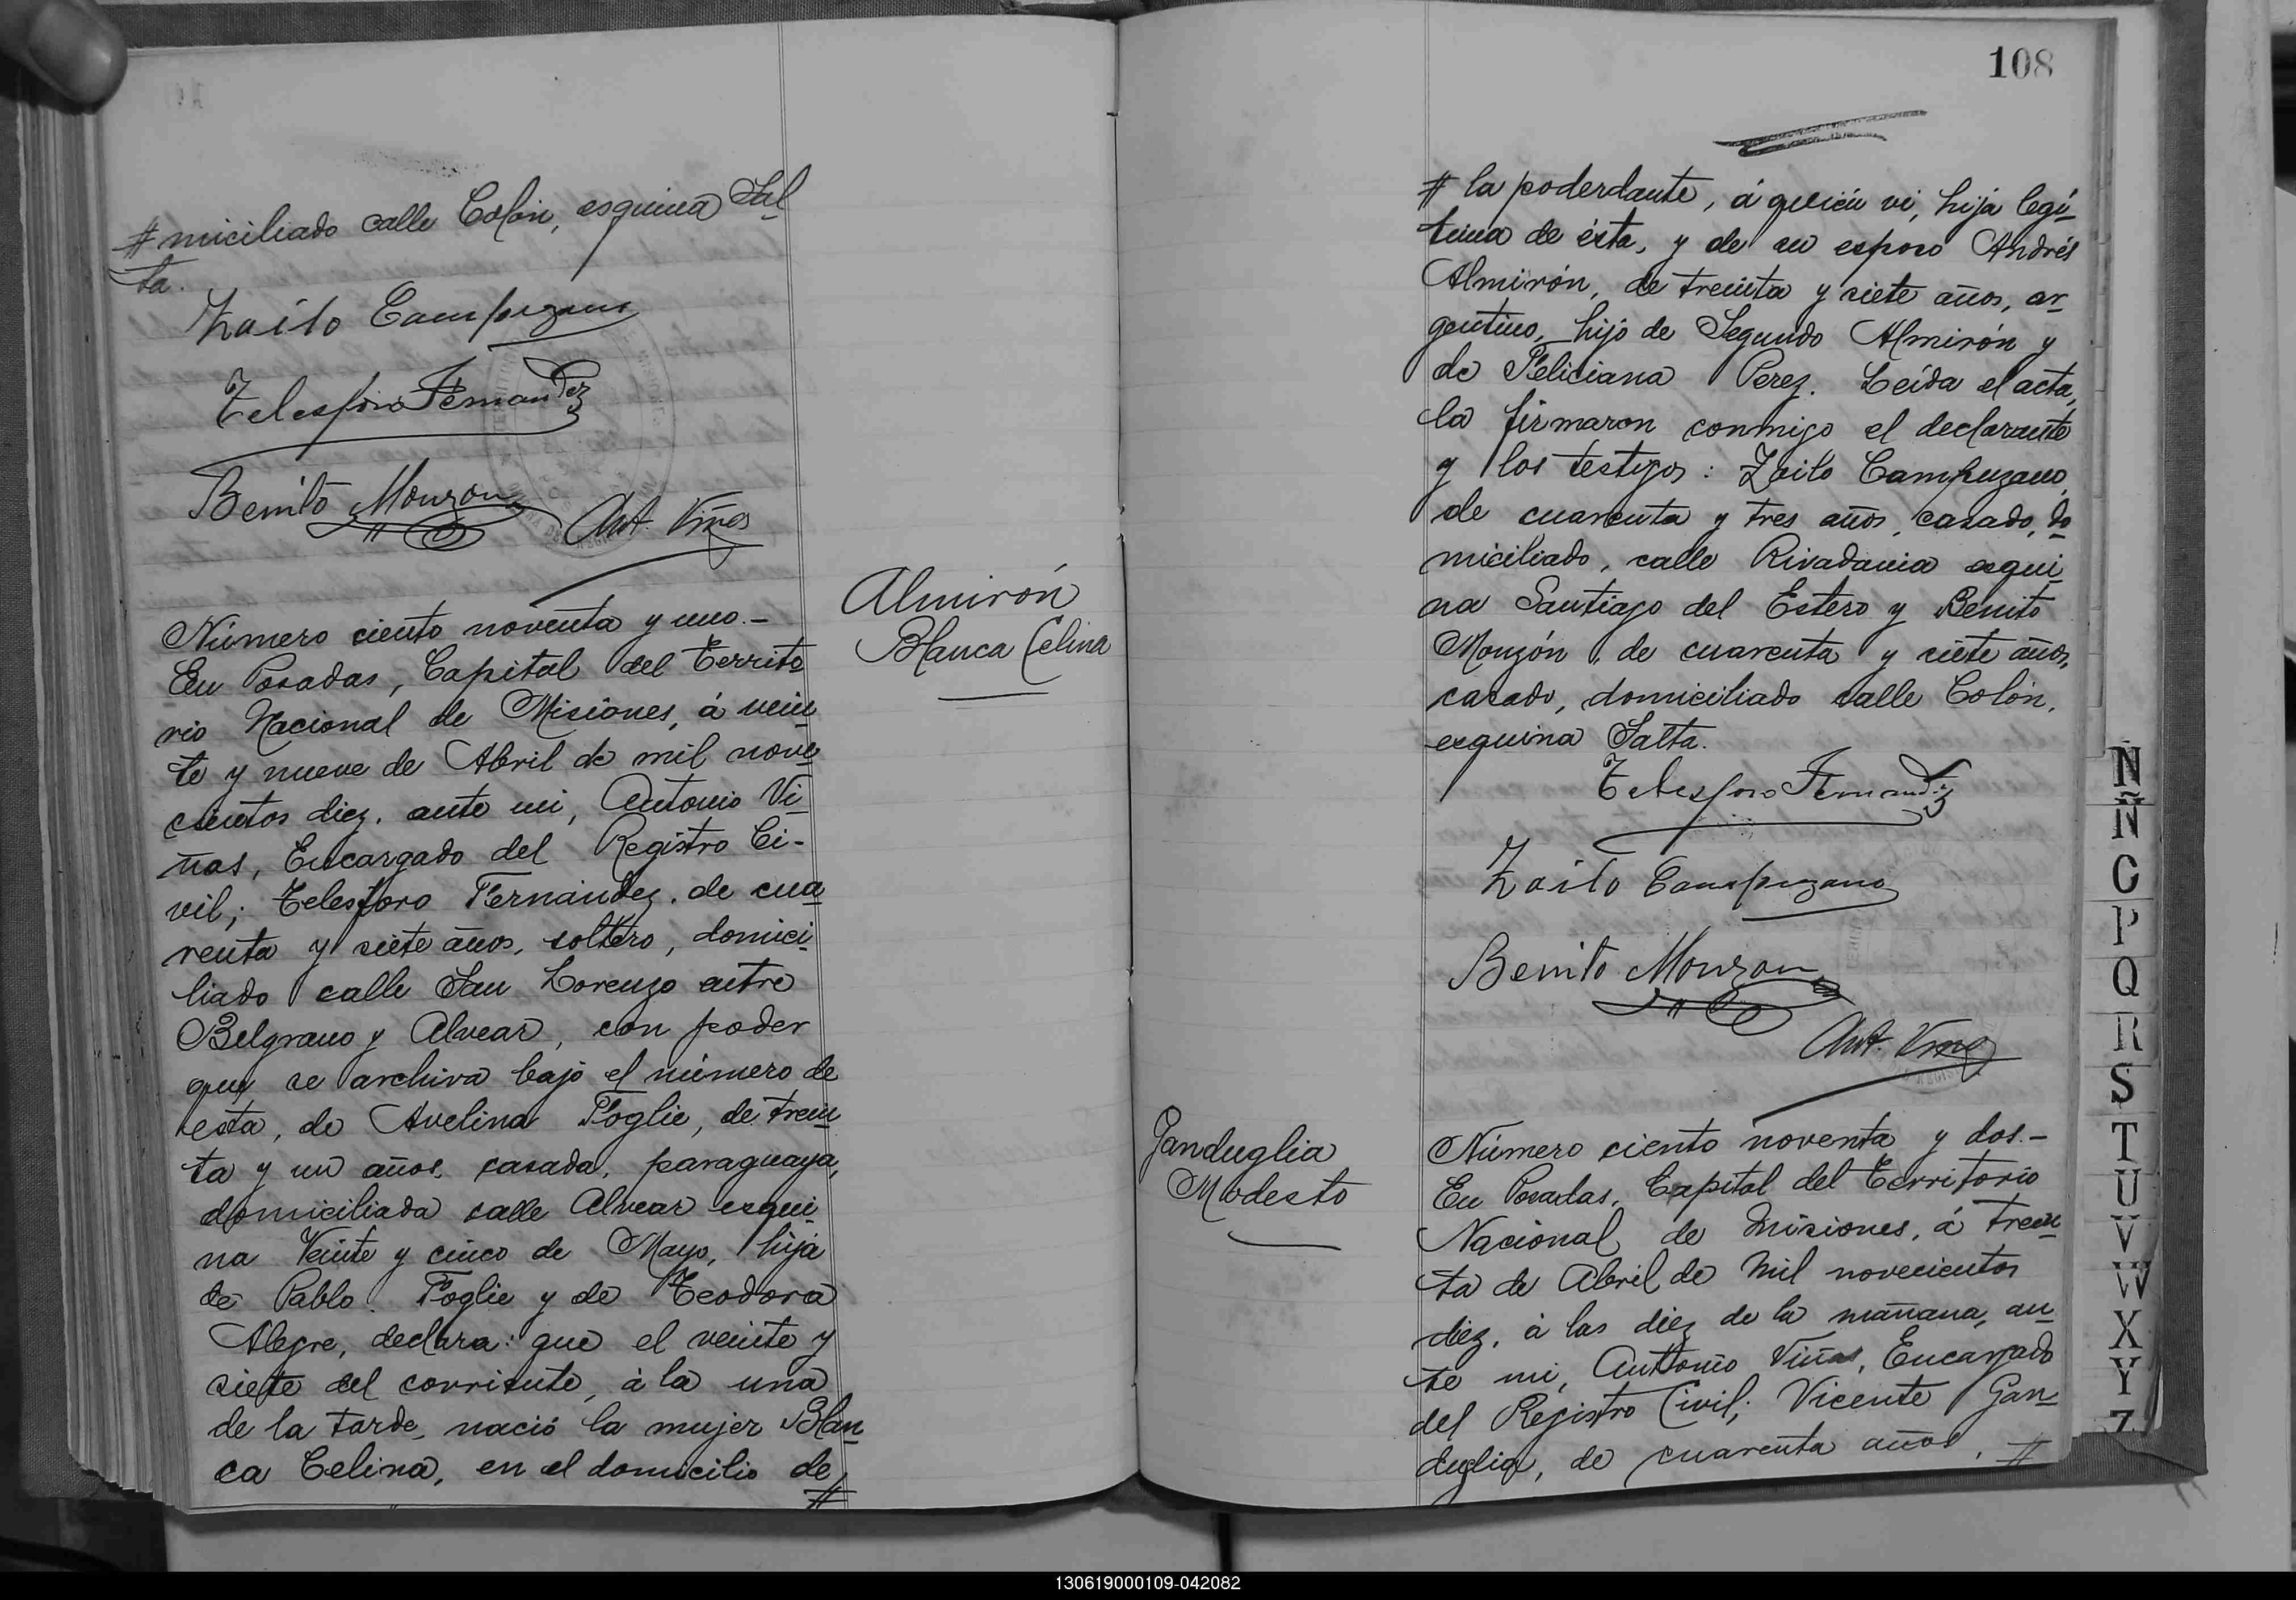 # miciliado calle Colón, esquina Sal
ta.
Zoilo Campuzano
Telesforo Fernandez
Benito Monzon
Ant. Viñas
Almirón
Blanca Celina
Número ciento noventa y uno.-
En Posadas, Capital del Territo
rio Nacional de Misiones, á vein
te y nueve de Abril de mil nove
cientos diez, ante mi, Antonio Vi
ñas, Encargado del Registro Ci-
vil; Telesforo Fernández, de cua
renta y siete años, soltero, domici
liado calle San Lorenzo entre
Belgrano y Alvear, con poder
que se archiva bajo el número de
esta, de Avelina Foglie, de trein
ta y un años, casada, paraguaya,
domiciliada calle Alvear esqui
na Veinte y cinco de Mayo, hija
de Pablo Foglie y de Teodora
Alegre, declara: que el veinte y
siete del corriente, á la una
de la tarde, nació la mujer Blan
ca Celina, en el domicilio de
#
108
# la poderdante, á quien vi, hija legí
tima de ésta, y de su esposo Andrés
Almirón, de treinta y siete años, ar
gentino, hijo de Segundo Almirón y
de Feliciana Perez. Leída el acta,
la firmaron conmigo el declarante
y los testigos: Zoilo Campuzano,
de cuarenta y tres años, casado, do
miciliado, calle Rivadavia esqui
na Santiago del Estero y Benito
Monzón, de cuarenta y siete años,
casado, domiciliado calle Colón,
esquina Salta.
Telesforo Fernandez
Zoilo Campuzano
Benito Monzon
Ant. Viñas
Ganduglia
Modesto
Número ciento noventa y dos.-
En Posadas, Capital del Territorio
Nacional de Misiones, á trein
ta de Abril de mil novecientos
diez, á las diez de la mañana, an
te mi, Antonio Viñas, Encargado
del Registro Civil; Vicente Gan
duglia, de cuarenta años, #
N
Ñ
O
P
Q
R
S
T
U
V
W
X
Y
Z
130619000109-042082